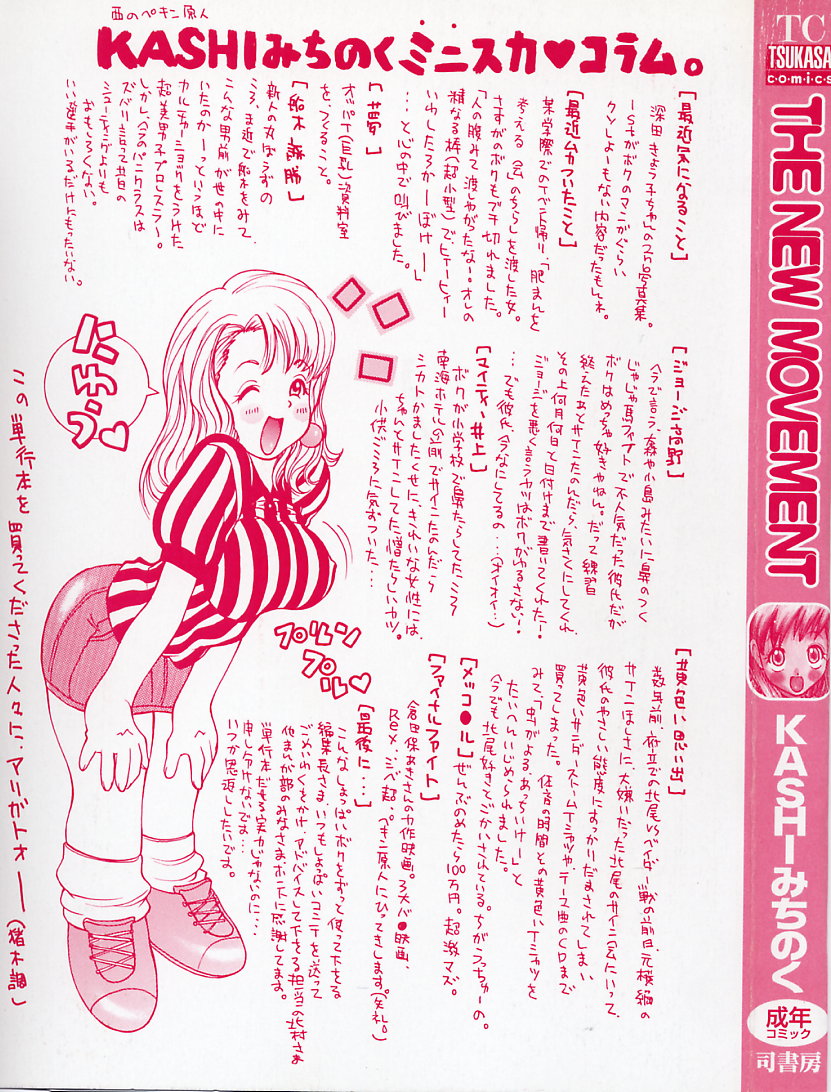 西のペキン原人
KASHIみちのくミニスカ♥コラム。
[最近気になること]
深田きょう子ちゃんの2nd写真集。
1stがボクのマンガぐらい
クソしょーもない内容だったもんネ。
[最近ムカついたこと]
某学際でのイベント帰り、「肥まんを
考える会」のちらしを渡した女。
さすがのボクもブチ切れました。
「人の腹みて渡しやがったなー。オレの
精なる棒(超小型)で、ヒィーヒィー
いわしたろかーぼけー」
…と心の中で叫びました。
[昔の夢]
オッパイ(巨乳)資料室
を、つくること。
[船木誠勝]
新人の丸ぼうずの
ころ、ま近で船木をみて、
こんな男前が世の中に
いたのかーっていうほど
カルチャーショックをうけた
超美男子プロレスラー。
しかし、今のパンクラスは
ズバリ言って昔の
シューティングよりも
おもしろくない。
いい選手がいるだけにもったいない。
[ジョージ高野]
今で言う、森や小島みたいに鼻のつく
じゃじゃ馬ファイトで不人気だった彼氏だが
ボクはめっちゃ好きやねん。だって練習
終えたあとサインたのんだら、気さくにしてくれ、
その上何月何日と日付けまで書いてくれたー。
ジョージを悪く言うヤツはボクがゆるさない。
…でも彼氏、今なにしてるの…(オイオイ…)
[マイティ井上]
ボクが小学校で鼻たらしてたころ
南海ホテル前でサインたのんだら
シカトかましたくせに、きれいな女性には、
ちゃんとサインしてた憎たらしいヤツ。
小供ごころに気ずついた…
[黄色い思い出]
数年前、府立での北尾vsベイダー戦の前日、元横綱の
サインほしさに、大嫌いだった北尾のサイン会にいって、
彼氏のやさしい態度にすっかりだまされてしまい
黄色いサンダーストームTシャツやテーマ曲のCDまで
買ってしまった。体育の時間との黄色いTシャツを
みて、「虫がよる、あっちいけー!」と
たいへんいじめられました。
今でも北尾好きとごかいされている。ちがうっちゅーの。
[メッコ●ール]
ぜんぶのめたら100万円。超激マズ。
[ファイナルファイト]
倉田保あきさんの力作映画。3大バ●映画、
Rex、シベ超、ペキン原人にひってきします。(失礼。)
[最後に…]
こんなしょっぱいボクをずっと使って下さる
編集長さま、いつもしょっぱいコミを送って
ごめいわくをかけ、アドバイスして下さる担当の北村さま
他まんが部のみなさま、ホントに感謝してます。
単行本だせる実力じゃないのに…
申しわけないです…
いつか恩返ししたいです。
パンチラフ♥
プルンプル♥
この単行本を買ってくださった人々に、アリガトォー(猪木調)
TC
TSUKASA
comics
THE NEW MOVEMENT
KASHIみちのく
成年
コミック
司書房